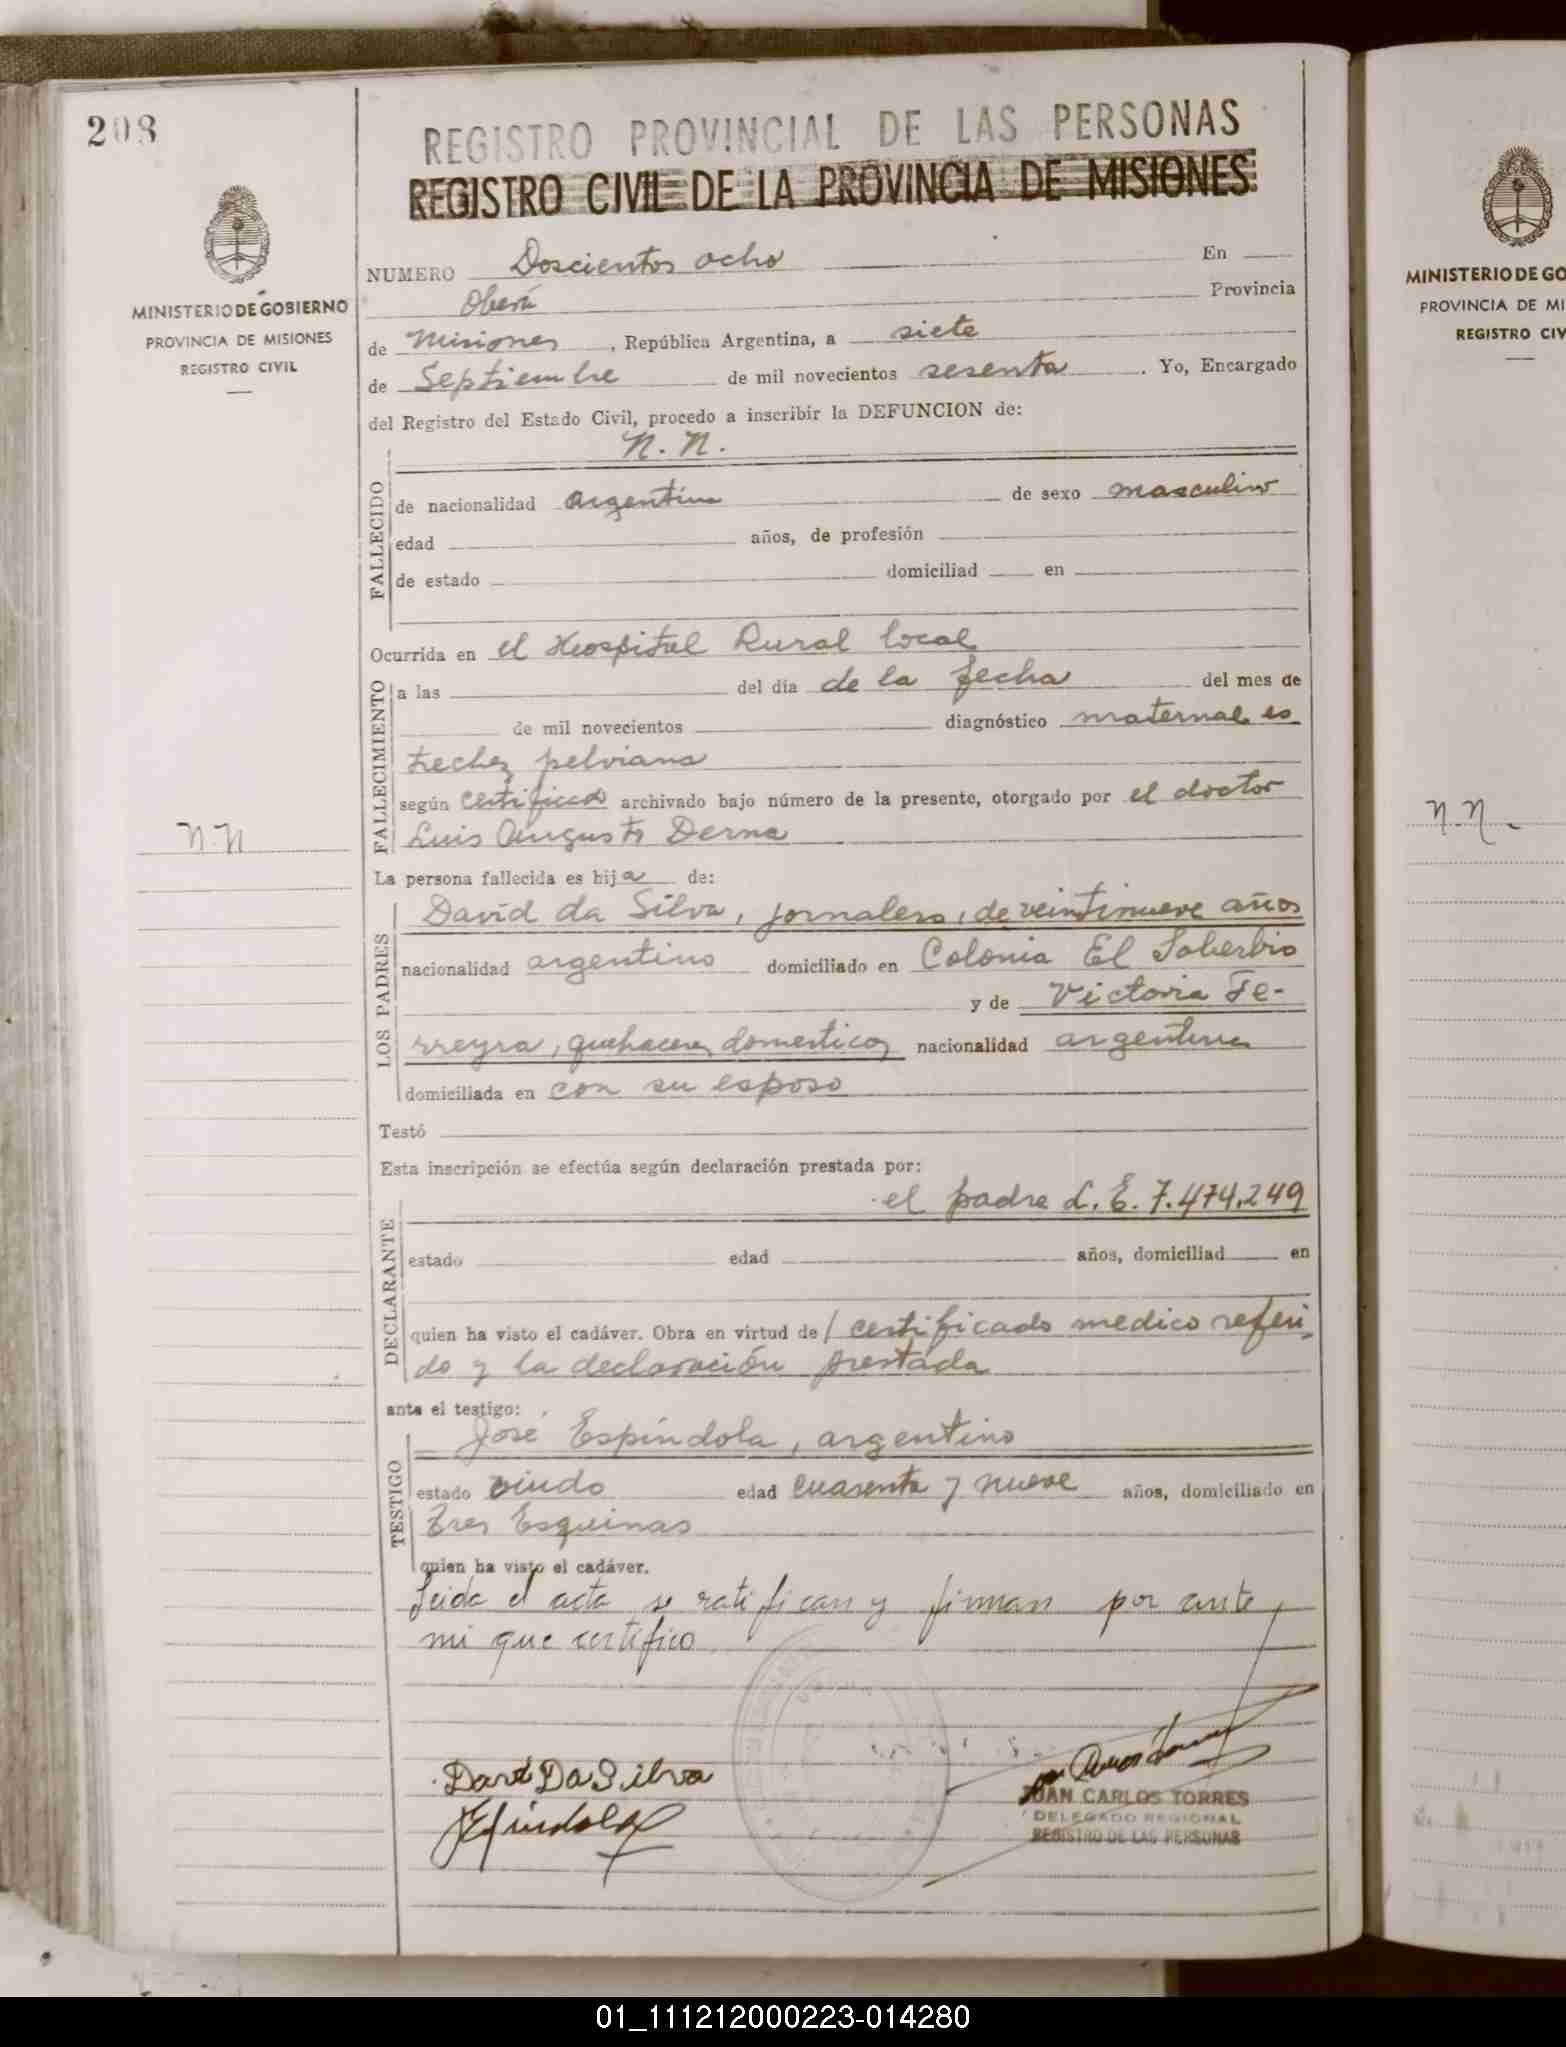 208
REGISTRO PROVINCIAL DE LAS PERSONAS
REGISTRO CIVIL DE LA PROVINCIA DE MISIONES
MINISTERIO DE GOBIERNO
PROVINCIA DE MISIONES
REGISTRO CIVIL
NUMERO Doscientos ocho En
Oberá Provincia
de Misiones, República Argentina, a siete
de Septiembre de mil novecientos sesenta. Yo, Encargado
del Registro del Estado Civil, procedo a inscribir la DEFUNCION de:
N. N.
FALLECIDO
de nacionalidad argentina de sexo masculino
edad años, de profesión
de estado domiciliad en
Ocurrida en el Hospital Rural local
FALLECIMIENTO
a las del día de la fecha del mes de
de mil novecientos diagnóstico maternal es
trechez pelviana
según certificado archivado bajo número de la presente, otorgado por el doctor
Luis Augusto Derna
N.N
La persona fallecida es hija de:
LOS PADRES
David da Silva, jornalero, de veintinueve años
nacionalidad argentino domiciliado en Colonia El Soberbio
y de Victoria Fe-
rreyra, quehaceres domesticos nacionalidad argentina
domiciliada en con su esposo
Testó
Esta inscripción se efectúa según declaración prestada por:
el padre L. E. 7.474.249
DECLARANTE
estado edad años, domiciliad en
quien ha visto el cadáver. Obra en virtud de/ certificado medico referi-
do y la declaración prestada
ante el testigo:
TESTIGO
José Espíndola, argentino
estado viudo edad cuarenta y nueve años, domiciliado en
Tres Esquinas
quien ha visto el cadáver.
Leida el acta se ratifican y firman por ante
mi que certifico
Davi Da Silva
JEspindola
JUAN CARLOS TORRES
DELEGADO REGIONAL
REGISTRO DE LAS PERSONAS
MINISTERIO DE GO
PROVINCIA DE MI
REGISTRO CIV
N.N.
01_111212000223-014280